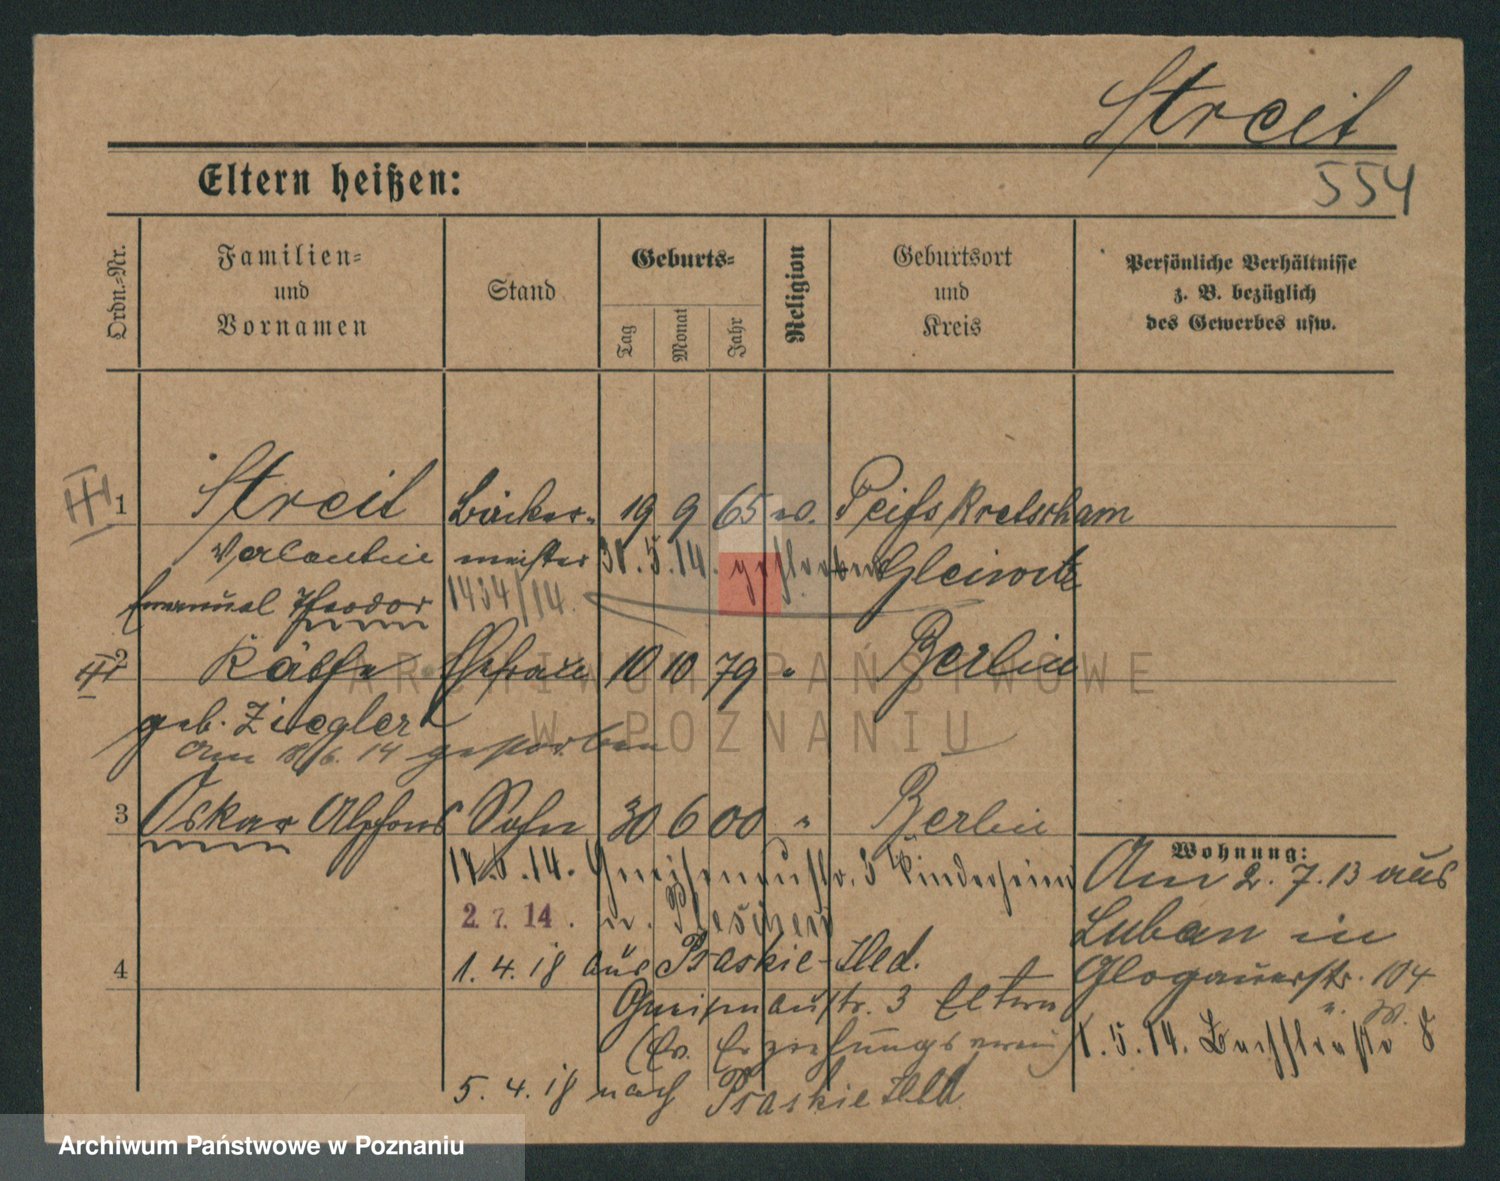 Streit
554
Eltern heißen:
Ordn.-Nr.
Familien-
und
Vornamen
Stand
Geburts-
Tag
Monat
Jahr
Religion
Geburtsort
und
Kreis
Persönliche Verhältnisse
z. B. bezüglich
des Gewerbes usw.
1 Streit Bäcker- 19 9 65 ev. Peiskretscham
Valentin meister 30.5.14. gestorben Gleiwitz
Emanuel Theodor 1434/14.
2 Käthe Ehefrau 10 10 79 " Berlin
geb. Ziegler
Am 18/6. 14 gestorben
3 Oskar Alphons Sohn 30 6 00 " Berlin
14.6.14. Gneisenaustr. 3 Kinderheim
2. 7. 14. n. Pleschen
4 1. 4. 18 aus Praskie-Hld.
Gneisenaustr. 3 Eltern
(Ev. Erziehungsverein)
5. 4. 18 nach Praskie Hld.
Wohnung:
Am 2. 7. 13 aus
Luban in
Glogauerstr. 104
1. 5. 14. 8
ARCHIWUM PAŃSTWOWE
W POZNANIU
Archiwum Państwowe w Poznaniu